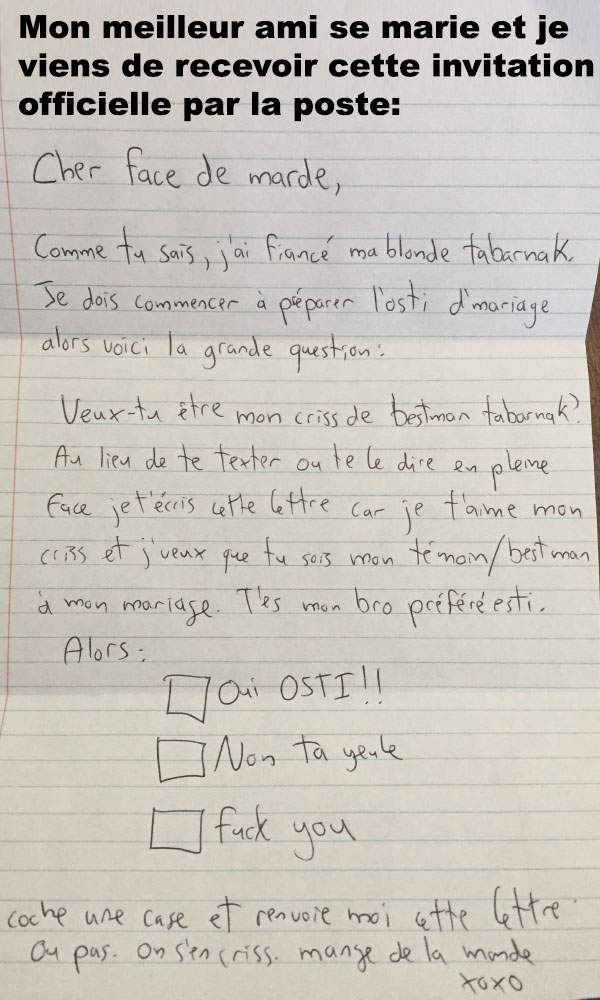 Mon meilleur ami se marie et je
viens de recevoir cette invitation
officielle par la poste:
Cher face de marde,
Comme tu sais, j'ai fiancé ma blonde tabarnak.
Je dois commencer à préparer l'osti d'mariage
alors voici la grande question:
Veux-tu être mon criss de bestman tabarnak?
Au lieu de te texter ou te le dire en pleine
face je t'écris cette lettre car je t'aime mon
criss et j'veux que tu sois mon témoin/bestman
à mon mariage. T'es mon bro préféré esti.
Alors:
Oui OSTI!!
Non ta yeule
Fuck you
coche une case et renvoie moi cette lettre.
Ou pas. On s'en criss. mange de la marde
xoxo